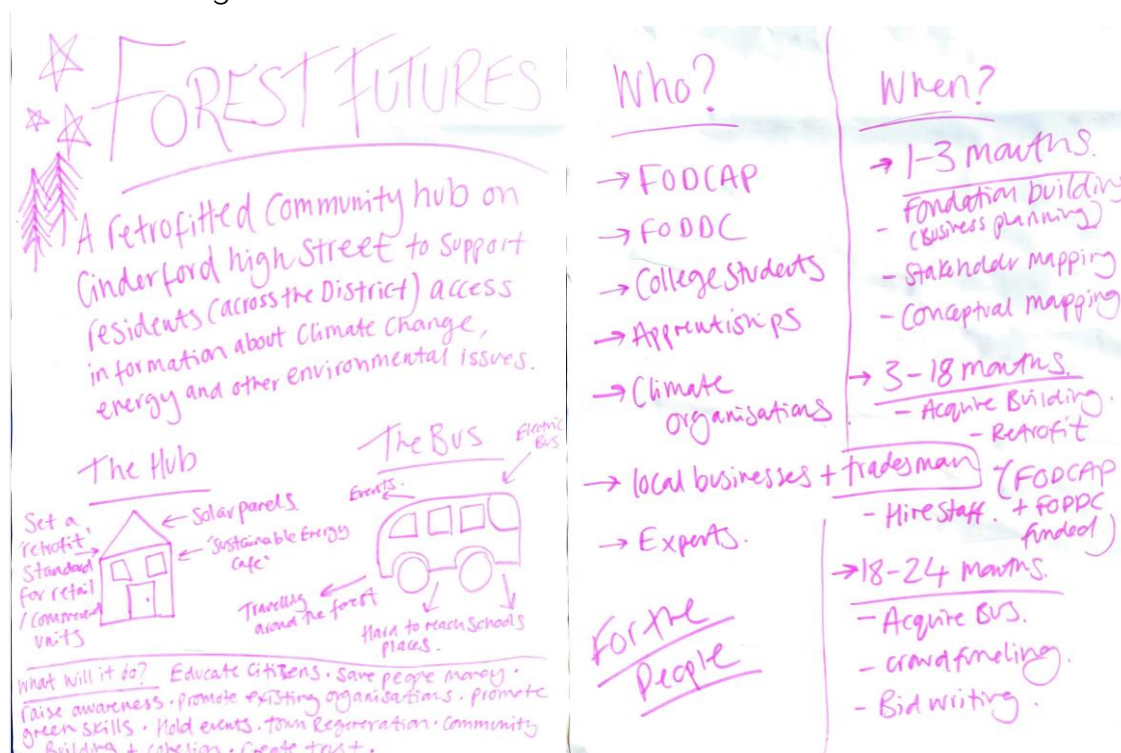 FOREST FUTURES
A retrofitted Community hub on
Cinderford high Street to support
residents (across the District) access
information about Climate Change,
energy and other environmental issues.
The Hub
Set a
'retrofit'
Standard
for retail
/ Commercial
units
← Solar panels.
← 'Sustainable Energy
Cafe'
The Bus
Electric
Bus
Events.
Travelling
around the forest
Hard to reach Schools
places.
What will it do? Educate Citizens · Save people money ·
raise awareness · promote existing organisations · promote
green skills · Hold events · town Regeneration · Community
Building + cohesion · Create trust ·
Who?
→ FODCAP
→ FODDC
→ College Students
→ Apprentiships
→ Climate
organisations
→ local businesses + tradesman
→ Experts.
For the
People
When?
→ 1-3 months.
- Fondation building
(Business planning)
- Stakeholder mapping
- Conceptual mapping
→ 3-18 months.
- Acquire Building.
- Retrofit
- Hire staff.
(FODCAP
+ FODDC
funded)
→ 18-24 months.
- Acquire Bus.
- crowdfunding.
- Bid writing.